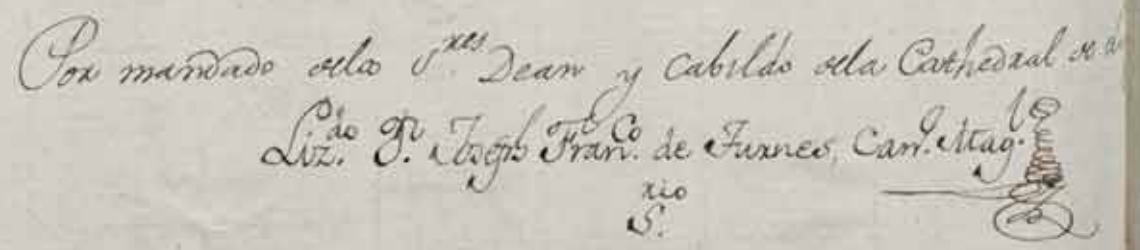 Por mandado delos S.res Dean y Cabildo dela Cathedral de
Liz.do D.n Joseph Fran.co de Furnes, Can.o Mag.l
S.rio